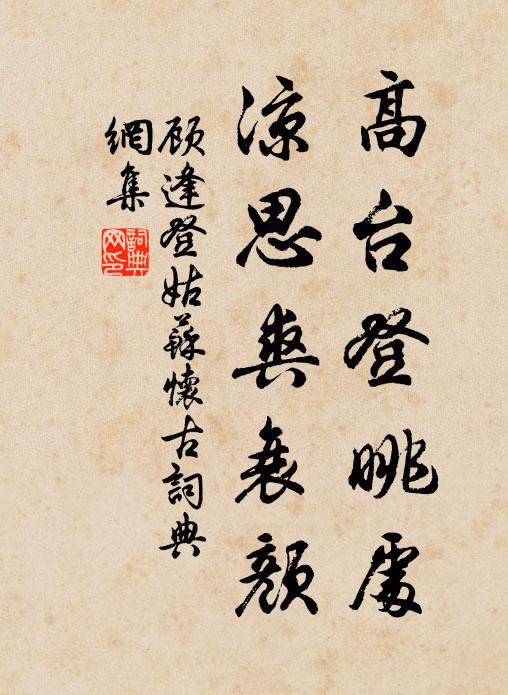 高台登眺處
涼思爽衰顔
顾逢登姑蘇懷古詞典
網集
詞典網印